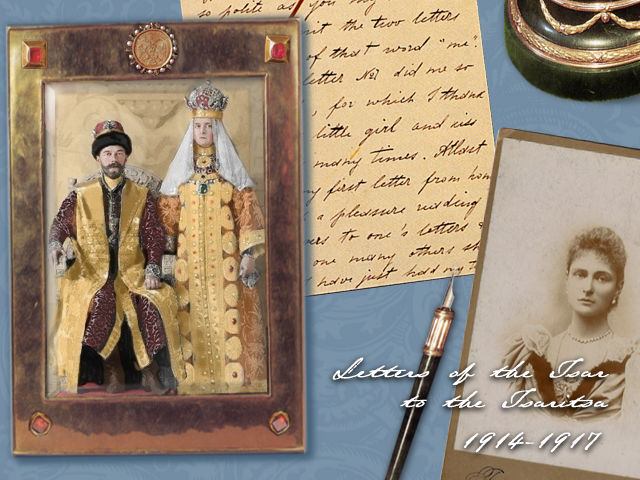 so polite as you
it the two letters
of that word "me".
letter No1 did me so
, for which I thank
little girl and kiss
many times. Atlast
my first letter from hom
a pleasure reading
to one's letters &
one many others sh
have just had my t
Letters of the Tsar
to the Tsaritsa
1914-1917